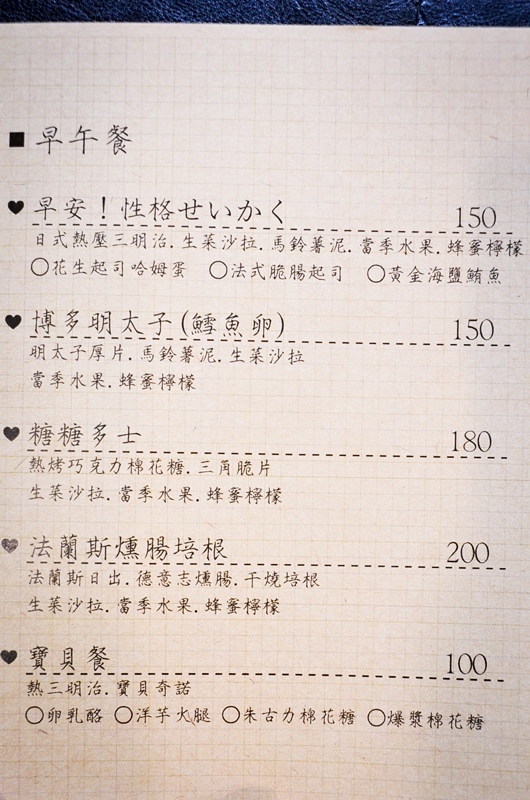 ■ 早午餐
♥ 早安！性格せいかく 150
日式熱壓三明治.生菜沙拉.馬鈴薯泥.當季水果.蜂蜜檸檬
○花生起司哈姆蛋 ○法式脆腸起司 ○黃金海鹽鮪魚
♥ 博多明太子(鱈魚卵) 150
明太子厚片.馬鈴薯泥.生菜沙拉
當季水果.蜂蜜檸檬
♥ 糖糖多士 180
熱烤巧克力棉花糖.三角脆片
生菜沙拉.當季水果.蜂蜜檸檬
♥ 法蘭斯燻腸培根 200
法蘭斯日出.德意志燻腸.干燒培根
生菜沙拉.當季水果.蜂蜜檸檬
♥ 寶貝餐 100
熱三明治.寶貝奇諾
○卵乳酪 ○洋芋火腿 ○朱古力棉花糖 ○爆漿棉花糖